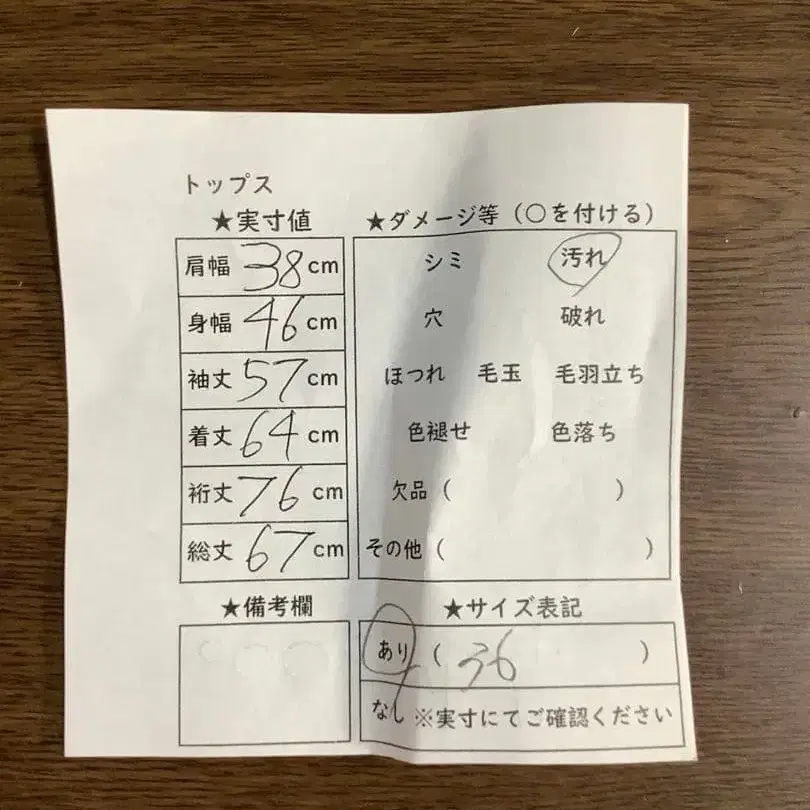 トップス
★実寸値
肩幅 38 cm
身幅 46 cm
袖丈 57 cm
着丈 64 cm
裄丈 76 cm
総丈 67 cm
★ダメージ等(○を付ける)
シミ 汚れ
穴 破れ
ほつれ 毛玉 毛羽立ち
色褪せ 色落ち
欠品( )
その他( )
★備考欄
★サイズ表記
あり( 36 )
なし ※実寸にてご確認ください